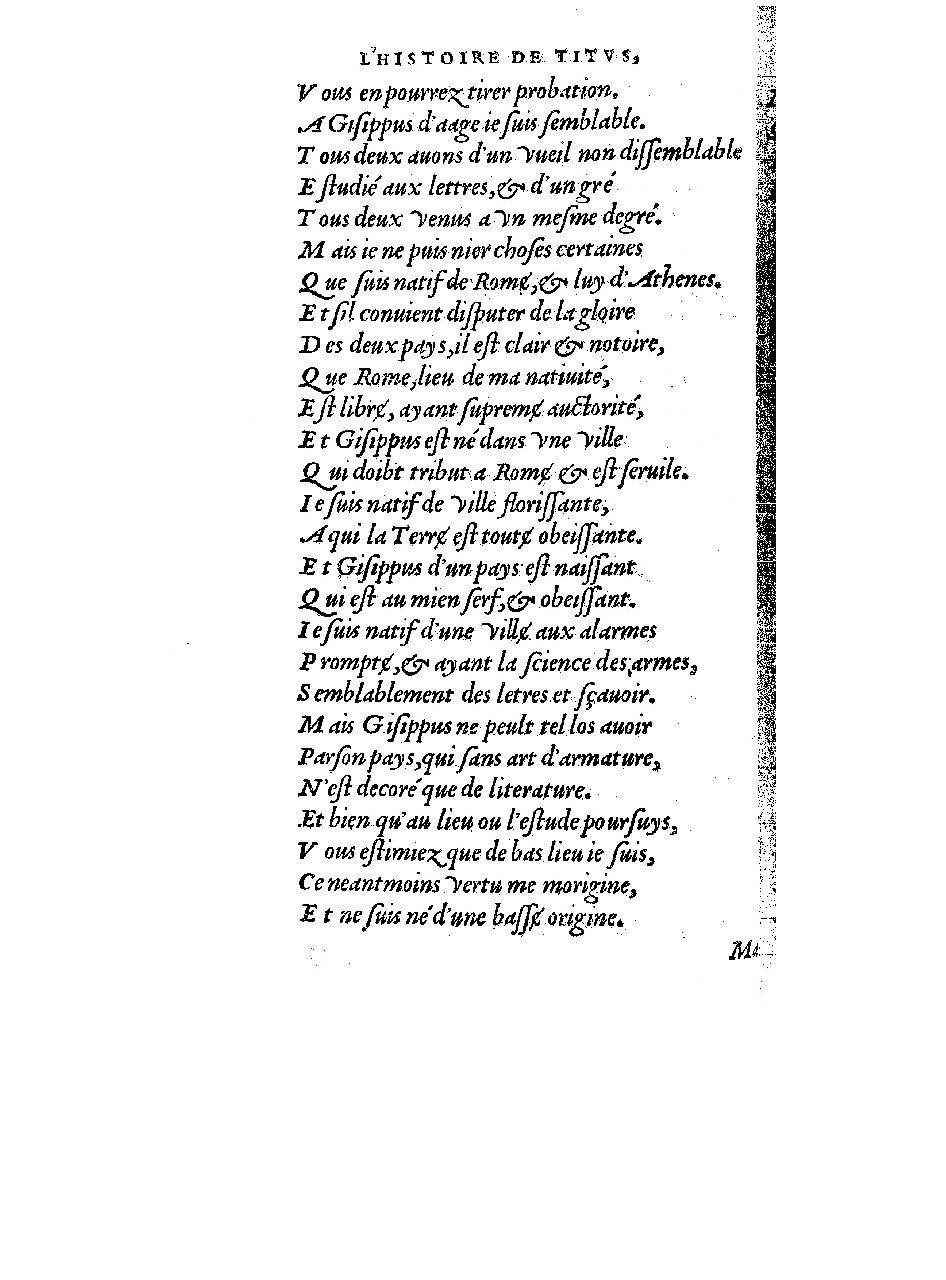 L'HISTOIRE DE TITVS,
Vous en pourrez tirer probation.
A Giſippus d'aage ie ſuis ſemblable.
Tous deux auons d'un vueil non diſſemblable
Eſtudié aux lettres, & d'un gré
Tous deux venus a vn meſme degré.
Mais ie ne puis nier choſes certaines
Que ſuis natif de Romɇ, & luy d'Athenes.
Et ſil conuient diſputer de la gloire
Des deux pays, il eſt clair & notoire,
Que Rome, lieu de ma natiuité,
Eſt librɇ, ayant ſupremɇ auctorité,
Et Giſippus eſt né dans vne ville
Qui doibt tribut a Romɇ & eſt ſeruile.
Ie ſuis natif de ville floriſſante,
A qui la Terrɇ eſt toutɇ obeiſſante.
Et Giſippus d'un pays eſt naiſſant
Qui eſt au mien ſerf, & obeiſſant.
Ie ſuis natif d'une villɇ aux alarmes
Promptɇ, & ayant la ſcience des armes,
Semblablement des letres et ſçauoir.
Mais Giſippus ne peult tel los auoir
Par ſon pays, qui ſans art d'armature,
N'eſt decoré que de literature.
Et bien qu'au lieu ou l'eſtude pourſuys,
Vous eſtimiez que de bas lieu ie ſuis,
Ce neantmoins vertu me morigine,
Et ne ſuis né d'une baſſɇ origine.
Ma